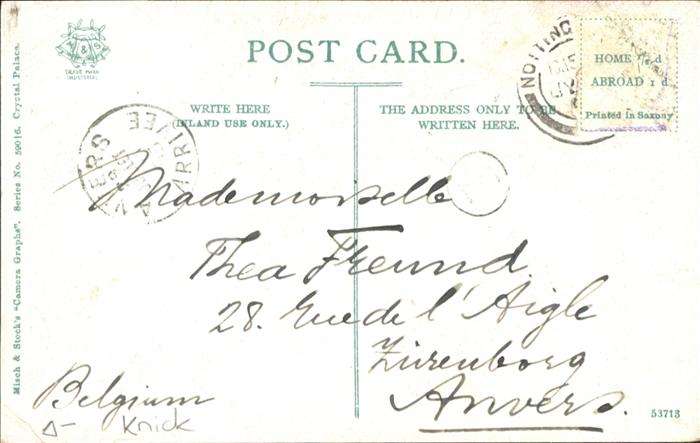 POST CARD.
M & S
TRADE MARK
INDUSTRIAL
WRITE HERE
(INLAND USE ONLY.)
THE ADDRESS ONLY TO BE
WRITTEN HERE.
HOME ½d
ABROAD 1d
Printed in Saxony
NOTTING
ANVERS
ARRIVEE
Mademoiselle
Thea Freund
28. Rue de l'Aigle
Zurenborg
Anvers.
Belgium
Δ- Knick
53713
Misch & Stock's "Camera Graphs". Series No. 59016. Crystal Palace.